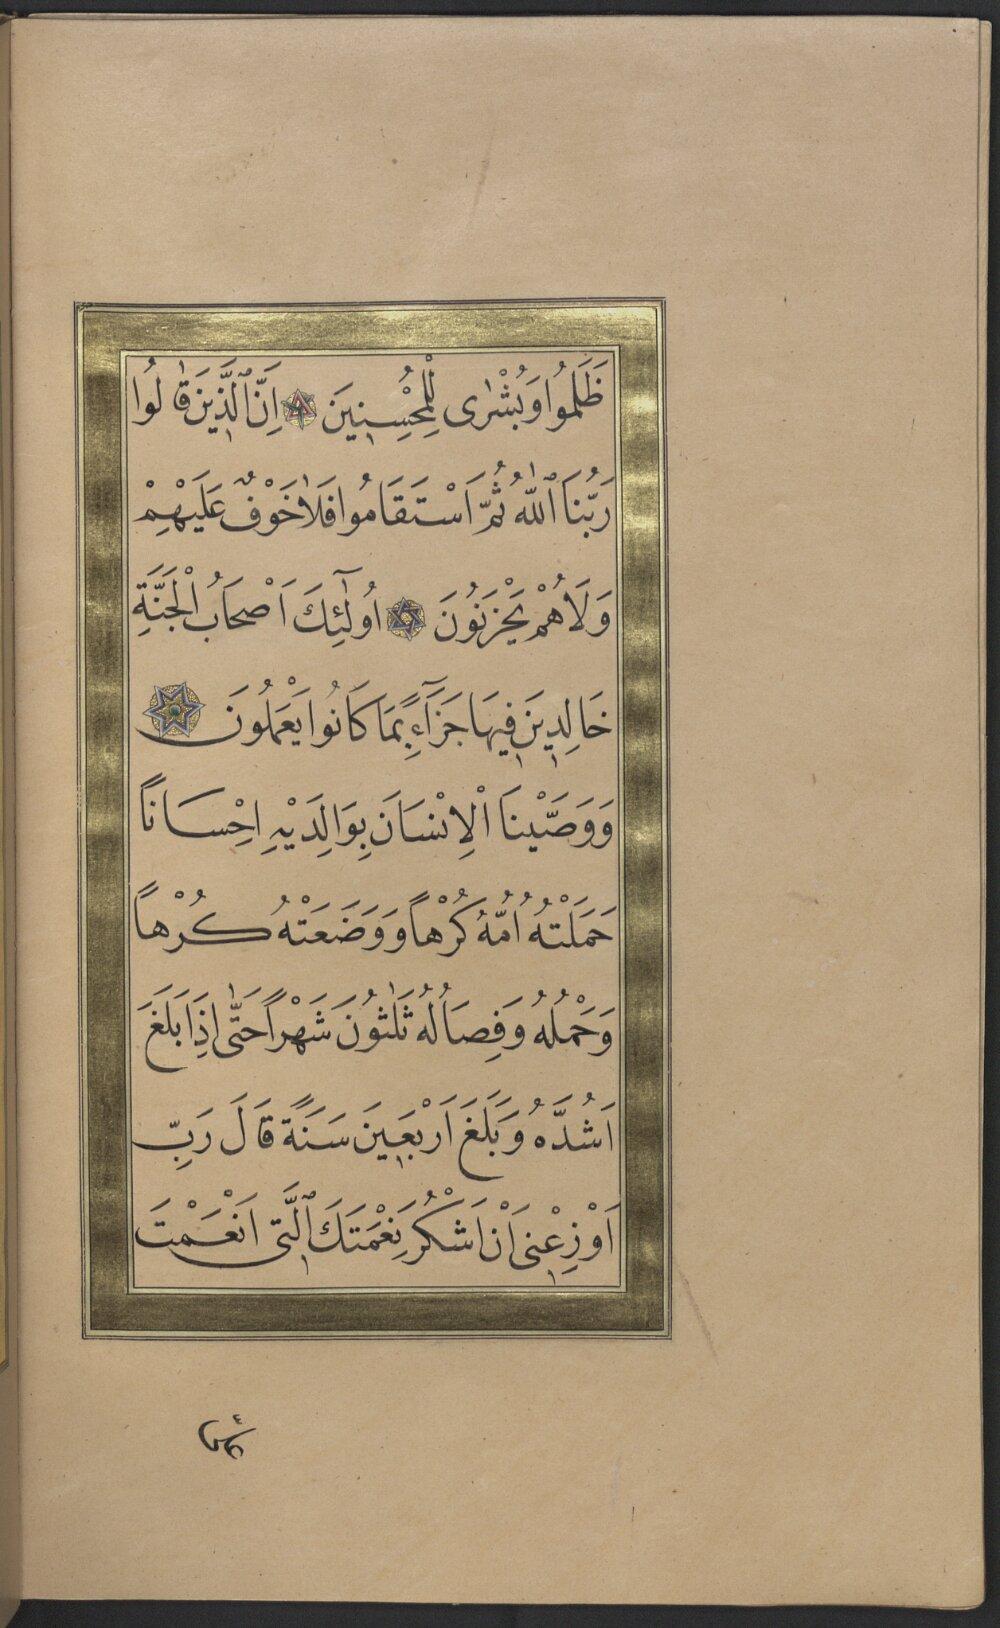 ظَلَمُوا وَبُشْرٰى لِلْمُحْسِنِينَ اِنَّ ٱلَّذِينَ قَالُوا
رَبُّنَا ٱللّٰهُ ثُمَّ اَسْتَقَامُوا فَلَا خَوْفٌ عَلَيْهِمْ
وَلَا هُمْ يَحْزَنُونَ اُولٰٓئِكَ اَصْحَابُ الْجَنَّةِ
خَالِدِينَ فِيهَا جَزَآءً بِمَا كَانُوا يَعْمَلُونَ
وَوَصَّيْنَا اْلِانْسَانَ بِوَالِدَيْهِ اِحْسَانًا
حَمَلَتْهُ اُمُّهُ كُرْهاً وَوَضَعَتْهُ كُرْهاً
وَحَمْلُهُ وَفِصَالُهُ ثَلٰثُونَ شَهْراً حَتّٰى اِذَا بَلَغَ
اَشُدَّهُ وَبَلَغَ اَرْبَعِينَ سَنَةً قَالَ رَبِّ
اَوْزِعْنِى اَنْ اَشْكُرَ نِعْمَتَكَ ٱلَّتِى اَنْعَمْتَ